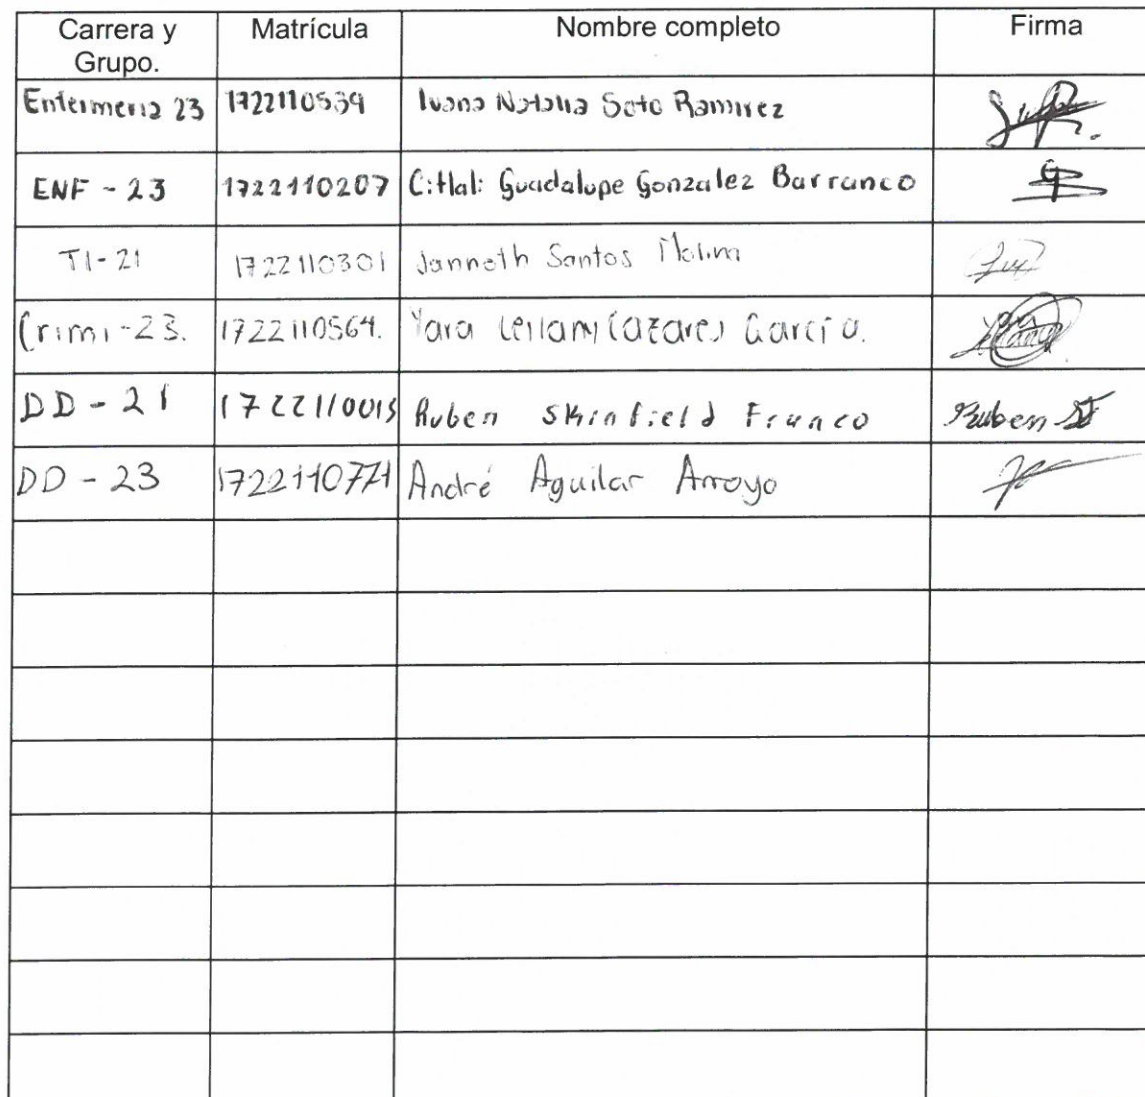 Carrera y Grupo. Matrícula Nombre completo Firma
Enfermeria 23 1722110539 Ivana Natalia Soto Ramirez
ENF - 23 1722110207 Citlali Guadalupe Gonzalez Barranco
TI-21 1722110301 Janneth Santos
Crimi-23. 1722110564. Yara Leilany Cazares García.
DD - 21 1722110013 Ruben Skinfield Franco Ruben SF
DD - 23 1722110771 André Aguilar Arroyo